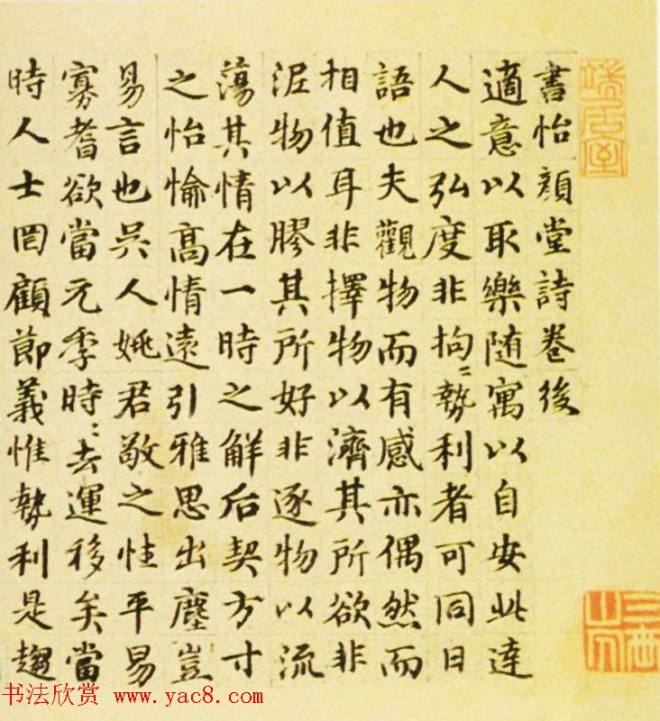 端居室
書怡顏堂詩卷後
適意以取樂随寓以自安此達
人之弘度非拘〻勢利者可同日
語也夫觀物而有感亦偶然而
相值耳非擇物以濟其所欲非
泥物以膠其所好非逐物以流
蕩其情在一時之解后契方寸
之怡愉高情遠引雅思出塵豈
易言也吳人姚君敬之性平易
寡耆欲當元季時〻去運移矣當
時人士罔顧節義惟勢利是趨
书法欣赏 www.yac8.com